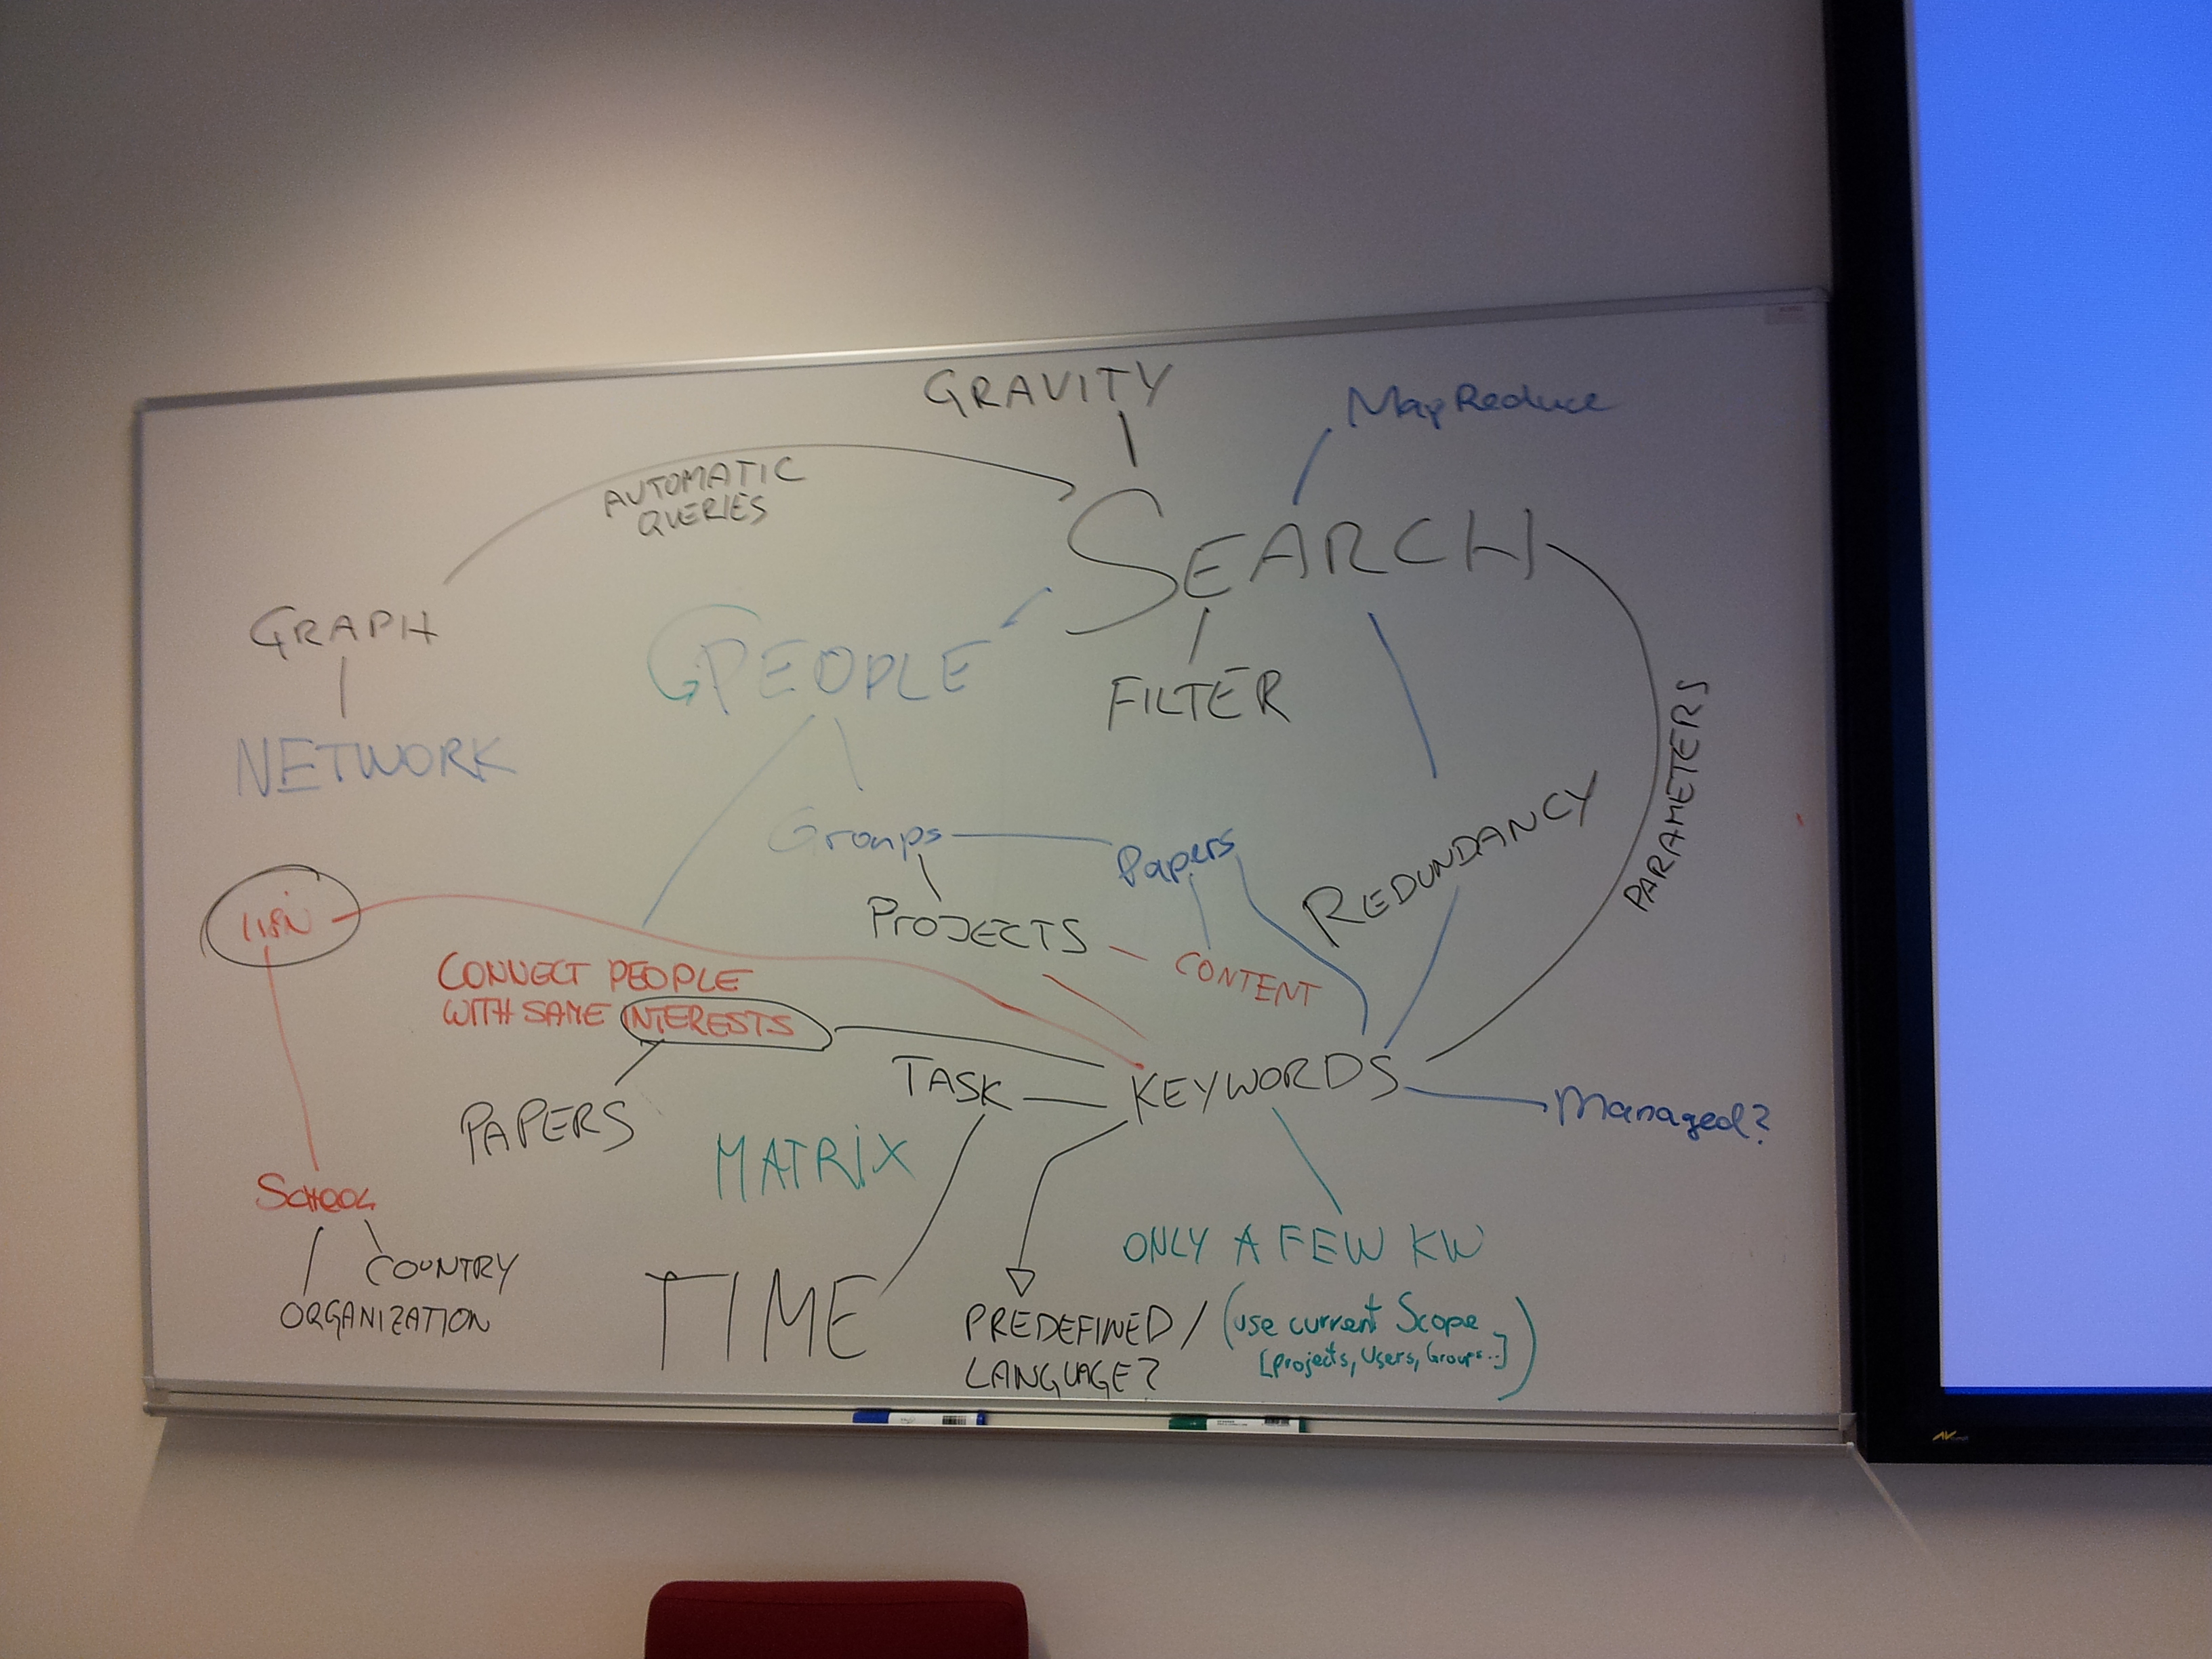 GRAVITY
MapReduce
AUTOMATIC
QUERIES
SEARCH
GRAPH
GPEOPLE
FILTER
NETWORK
PARAMETERS
Groups
Papers
REDUNDANCY
PROJECTS
CONTENT
CONNECT PEOPLE
WITH SAME INTERESTS
TASK
KEYWORDS
Managed?
PAPERS
MATRIX
SCHOOL
COUNTRY
ORGANIZATION
TIME
ONLY A FEW KW
PREDEFINED / (use current Scope
[projects, Users, Groups..])
LANGUAGE?